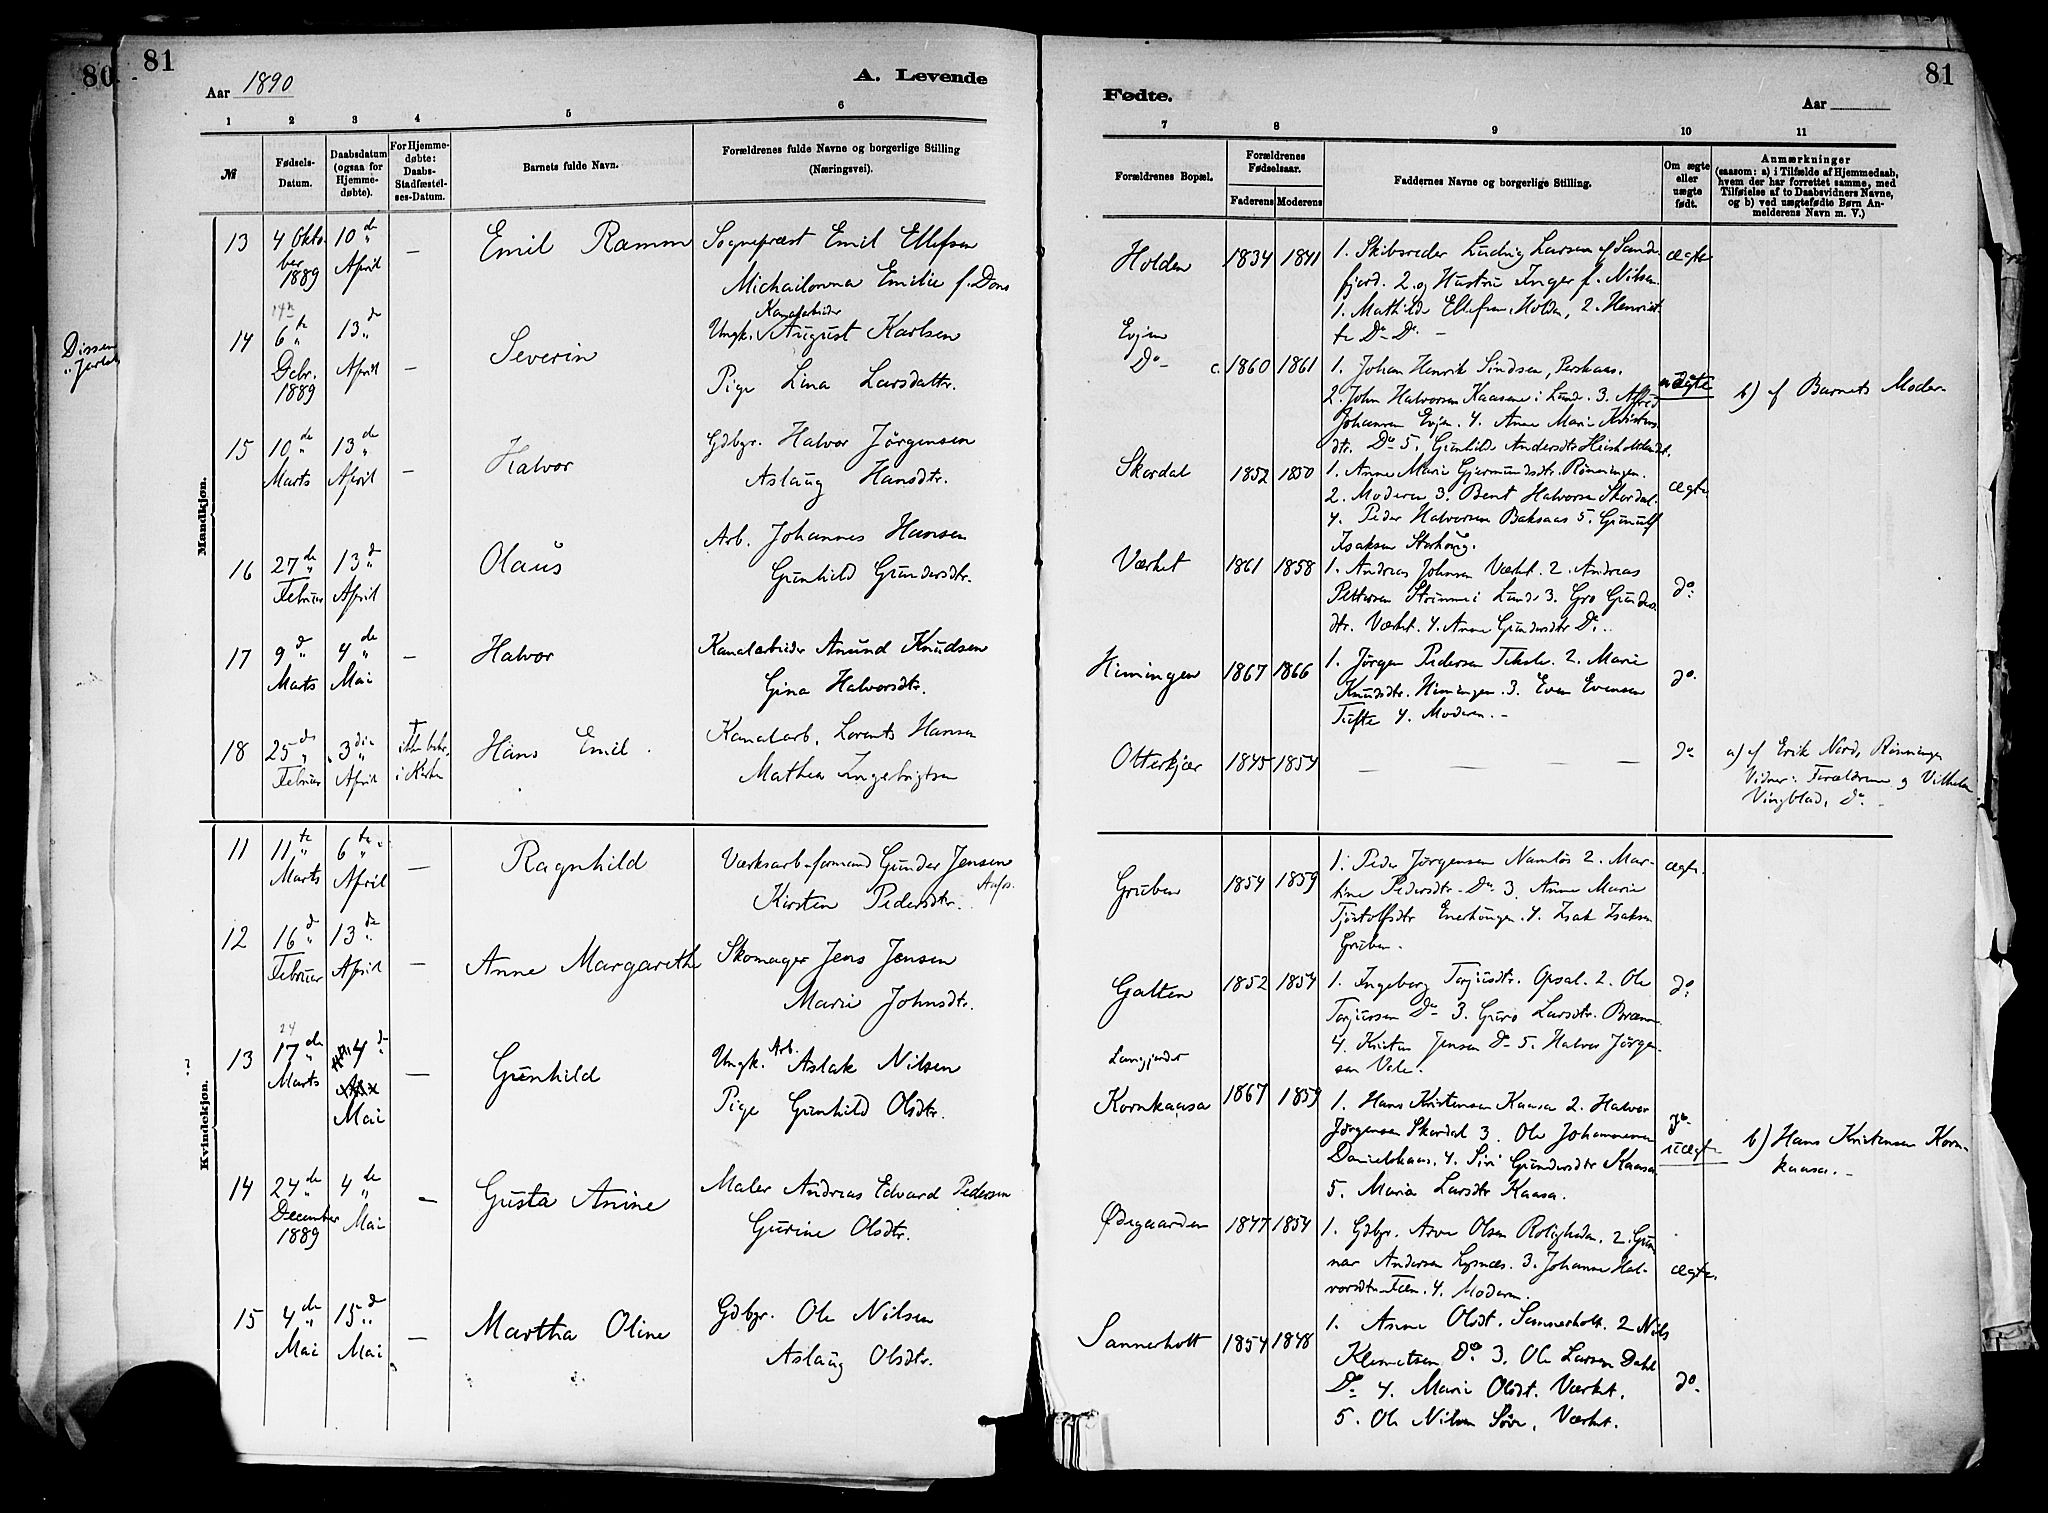 80
81
Aar 1890
A. Levende
1 2 3 4 5 6
№
Fødsels-
Datum.
Daabsdatum
(ogsaa for
Hjemme-
døbte).
For Hjemme-
døbte:
Daabs-
Stadfæstel-
ses-Datum.
Barnets fulde Navn.
Forældrenes fulde Navne og borgerlige Stilling
(Næringsvei).
Mandkjøn.
13 4 Okto-
ber
1889
10de
April
—
Emil Ramm
Sognepræst Emil Ellefsen
Michailovna Emilie f. Dons
14 6te
Decbr.
1889
13d
April
—
Severin
Kanalarbeider
Ungk. August Karlsen
Pige Lina Larsdatter.
15 10de
Marts
13de
April
—
Halvor
Gdbgr. Halvor Jörgensen
Aslaug Hansdtr.
16 27de
Februar
13d
April
Olaus
Arb. Johannes Hansen
Gunhild Gundersdtr.
17 9d
Marts
4de
Mai
—
Halvor
Kanalarbeider Anund Knudsen
Gina Halvorsdtr.
18 25de
Februar
3die
April
i Kirken
Hans Emil.
Kanalarb. Lorents Hansen
Mathea Ingebrigtsen
Kvindekjøn.
11 11te
Marts
6te
April
—
Ragnhild
Værksarb-formand Gunder Jensen
Kirsten Pedersdtr.
12 16d
Februar
13de
April
—
Anne Margarethe
Skomager Jens Jensen
Marie Johnsdtr.
?
24
13 17de
Marts
4d
Mai
—
Gunhild
Ungk. Arb. Aslak Nilsen
Pige Gunhild Olsdtr.
14 24de
December
1889
4de
Mai
—
Gusta Anine
Maler Andreas Edvard Pedersen
Gurine Olsdtr.
15 4de
Mai
15d
Mai
—
Martha Oline
Gdbgr. Ole Nilsen
Aslaug Olsdtr.
81
Fødte.
Aar
7 8 9 10 11
Forældrenes Bopæl.
Forældrenes
Fødselsaar.
Faderens Moderens
Faddernes Navne og borgerlige Stilling.
Om ægte
eller
uægte
født.
Anmærkninger
(saasom: a) i Tilfælde af Hjemmedaab,
hvem der har forrettet samme, med
Tilføielse af to Daabsvidners Navne,
og b) ved uægtefødte Børn An-
melderens Navn m. V.)
Holden 1834 1841
1. Skibsreder Ludvig Larsen af Sande-
fjord. 2. og Hustru Inger f. Nilsen.
1. Mathilde Ellefsen Holden, 2. Henriet-
te Do Do. —
ægte
Evjen
Do —
c. 1860 1861
1. Johan Henrik Sindsen,
2. John Halvorsen Kaasene i Lunde. 3. Alfred
Johansen Evjen. 4. Anne Marie
dtr. Do 5. Gunhild Andersdtr
uægte
b) af Barnets Moder-
Skordal 1852 1850
1. Anne Marie Gjermundsdtr. Rönningen.
2. Moderen 3. Bent Halvorsen Skordal.
4. Peder Halvorsen Baksaas 5. Gunulf
Isaksen Storhoug.
ægte
Værket 1861 1858
1. Andreas Johnsen Værket. 2. Andreas
Pettersen Strimme i Lunde 3. Gro Gunders-
dtr. Værket. 4. Anne Gundersdtr Do.
do.
Himingen 1867 1866
1. Jörgen Pedersen 2. Marie
Knudsdtr. Himingen. 3. Even Evensen
Tufte 4. Moderen. —
do.
Otterkjær 1845 1854
— — — —
do
a) af Erik Nord, Rönningen
Vidner: Forældrene og Vilhelm
Vingblad, Do. —
Gruben 1854 1859
1. Peder Jörgensen Namlös 2. Mar-
tine Pedersdtr. Do 3. Anne Marie
Tjostolfsdtr Enerhougen. 4. Isak Isaksen
Gruben.
ægte.
Galten 1852 1854
1. Ingeborg Torjusdtr. Opsal. 2. Ole
Torjussen Do 3. Guro Larsdtr.
4. Kristen Jensen Do 5. Halvor Jörgen-
sen Vale.
do.
Kornkaasa 1867 1859
1. Hans Kristensen Kaasa 2. Halvor
Jörgensen Skordal 3. Ole Johannesen
Danielskaas. 4. Siri Gundersdtr Kaasa
5. Maria Larsdtr Kaasa.
uægte
b) Hans Kristensen Korn-
kaasa. —
Ødegaarden 1847 1854
1. Gdbgr. Arve Olsen Roligheden. 2. Gun-
nar Andersen Lysnæs. 3. Johanne Hal-
vorsdtr Feen. 4. Moderen.
ægte.
Sannerholt 1854 1848
1. Anne Olsdt. Sannerholt. 2 Nils
Klemetsen Do 3. Ole Larsen Dahl
Do 4. Marie Olsdt. Værket.
5. Ole Nilsen Söve, Værket.
do.